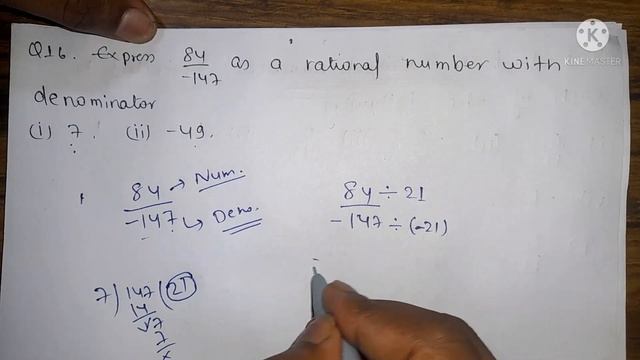 Q16. Express 84/-147 as a rational number with
denominator
(i) 7. (ii) -49.
84 → Num.
-147 → Deno.
84 ÷ 21
-147 ÷ (-21)
7) 147 (21
14
√7
7
x
KINEMASTER